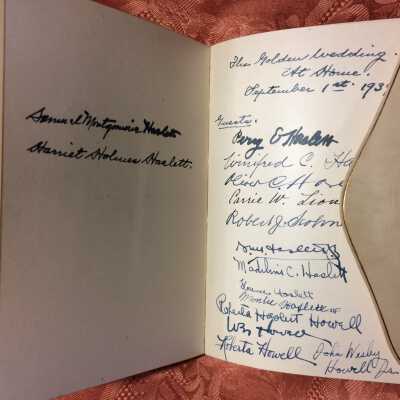 Samuel Montgomerie Haslett
Harriet Holmes Haslett.
The Golden Wedding.
At Home.
September 1st. 193
Guests.
Percy E Haslett
Winifred C. Ha
Oliver C.
Carrie W. Lion
Robert J.
Haslett
Madeline C. Haslett
Haslett
Haslett
Roberta Haslett Howell
Howell
Roberta Howell
John Wesley
Howell